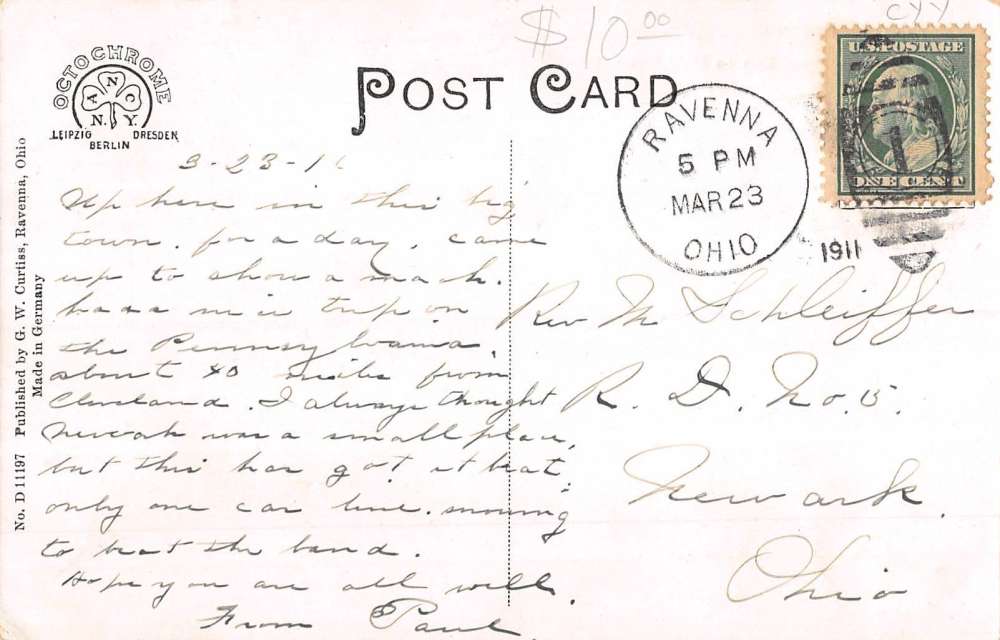 $10.00
CYY
OCTOCHROME
ANC
N.Y.
LEIPZIG DRESDEN
BERLIN
POST CARD
U.S. POSTAGE
ONE CENT
RAVENNA
5 PM
MAR 23
OHIO
1911
1
No. D 11197 Published by G. W. Curtiss, Ravenna, Ohio
Made in Germany
3-23-11
Up here in this big
town. for a day. came
up to show a mach.
on
the Pennsylvania.
about 40 miles from
Cleveland. I always thought
Newark was a small place,
but this has got it beat
only one car line. snowing
to beat the band.
Hope you are all well.
From Paul
Rev M Schleiffer
R. D. No. 5.
Newark.
Ohio